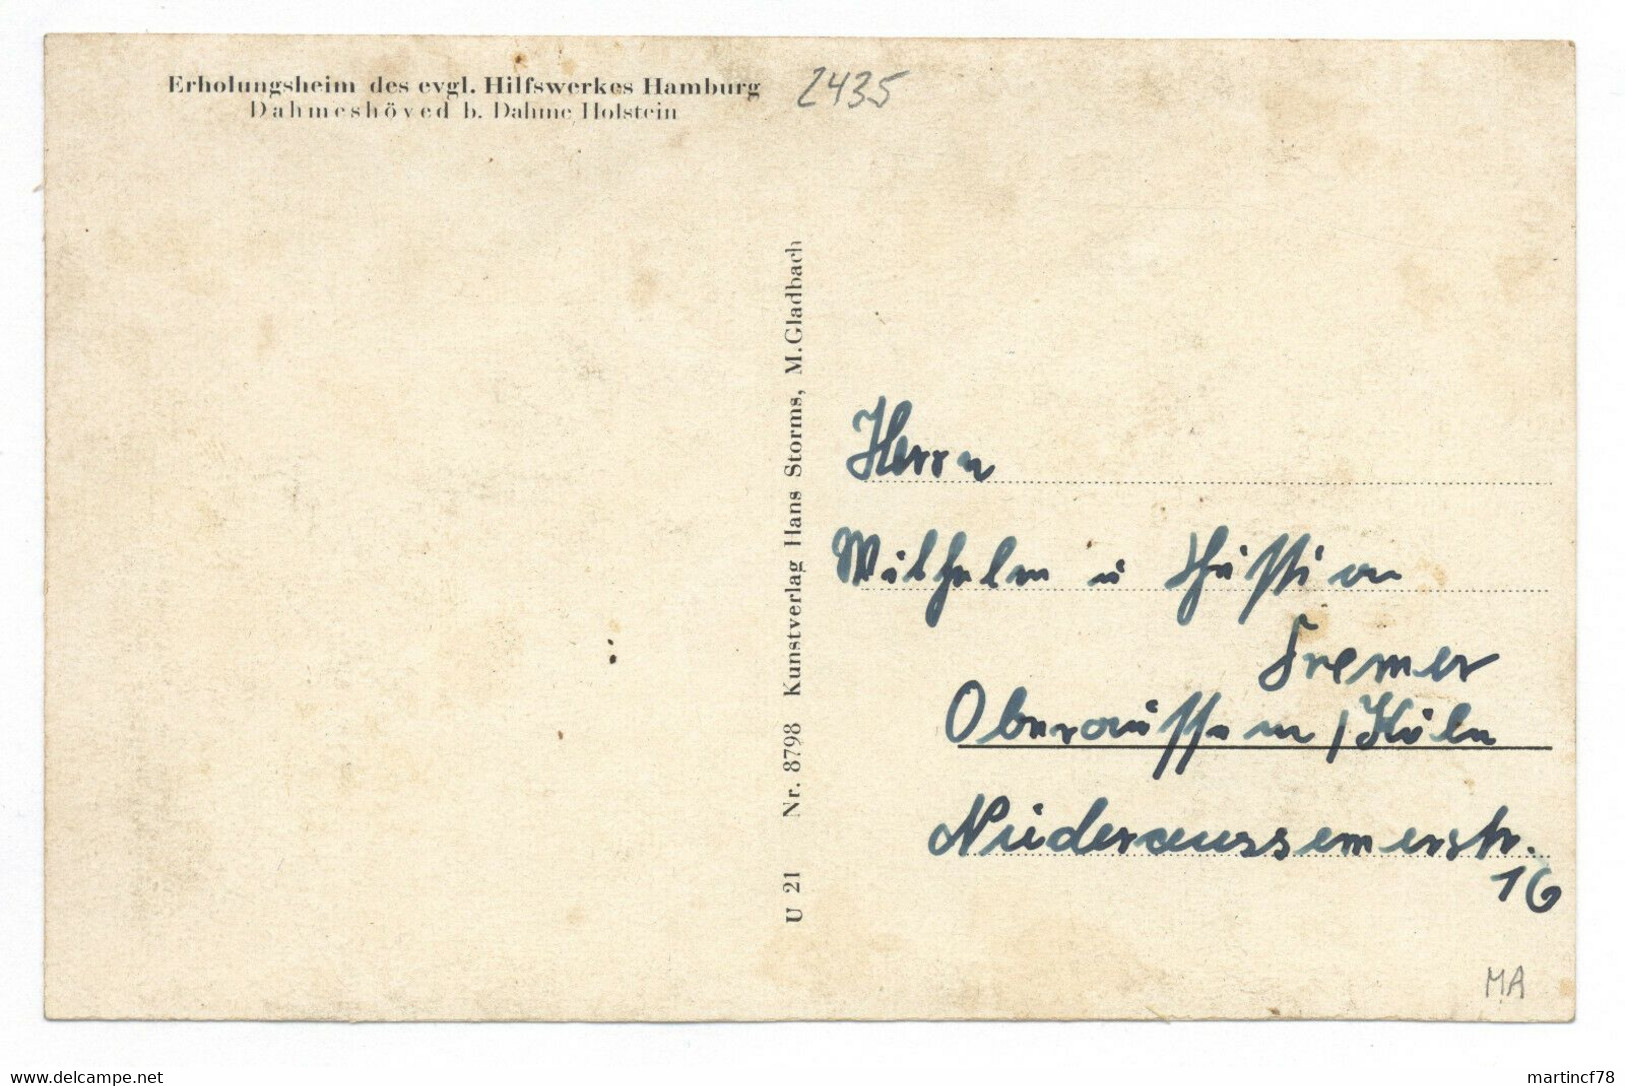 Erholungsheim des evgl. Hilfswerkes Hamburg
Dahmeshöved b. Dahme Holstein
2435
U 21 Nr. 8798 Kunstverlag Hans Storms, M.Gladbach
Herrn
Wilhelm u
Fremer
Oberaußem / Köln
Niederaussemerstr.
16
MA
www.delcampe.net
martincf78